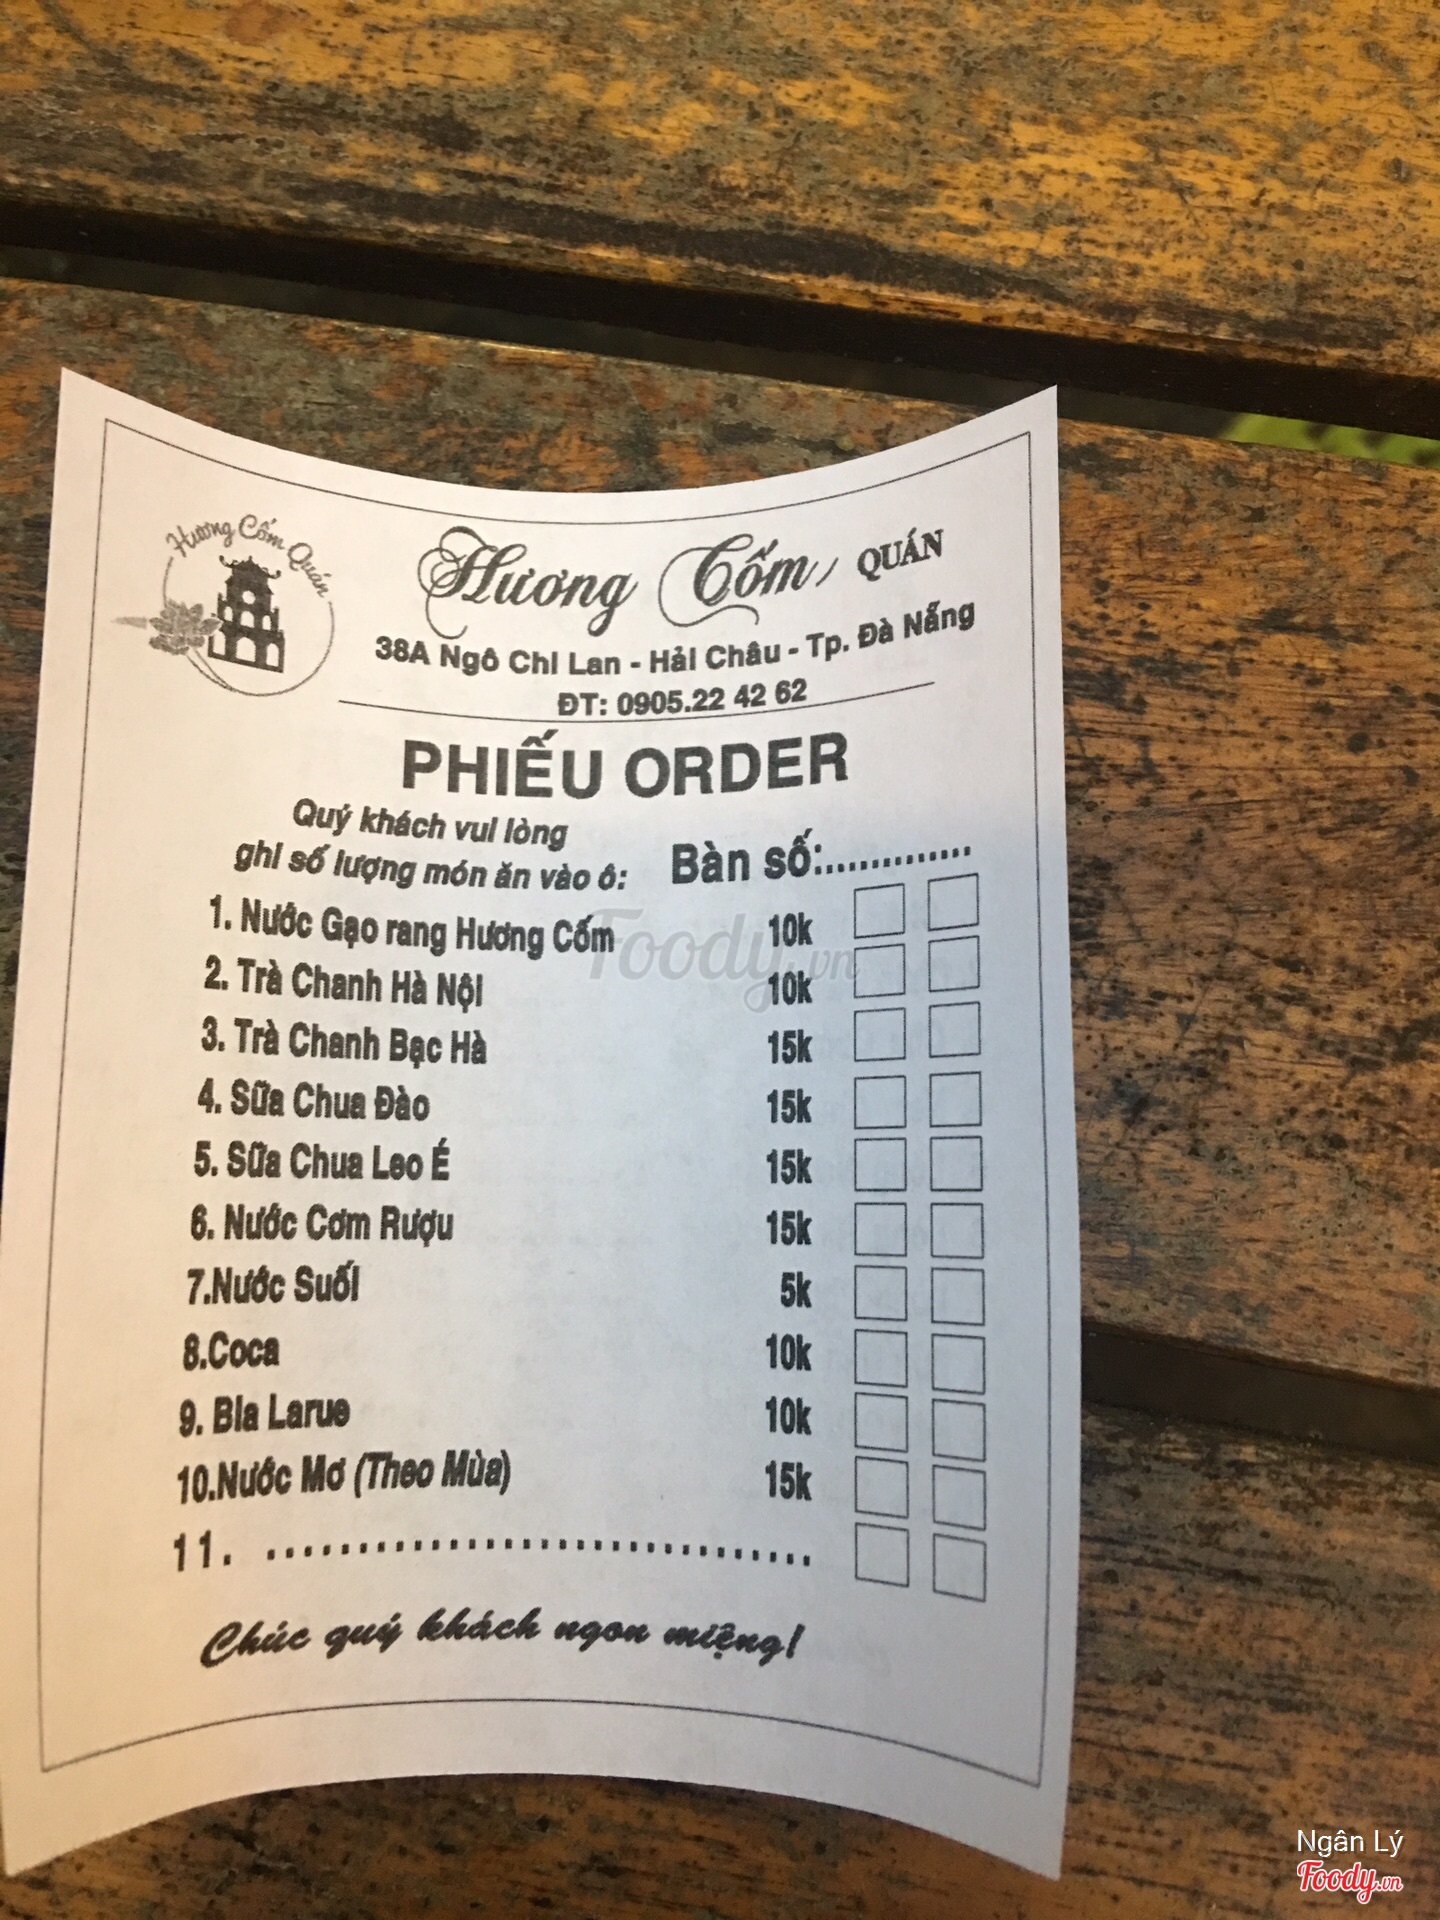 Hương Cốm Quán
Hương Cốm QUÁN
38A Ngô Chi Lan - Hải Châu - Tp. Đà Nẵng
ĐT: 0905.22 42 62
PHIẾU ORDER
Quý khách vui lòng
ghi số lượng món ăn vào ô:
Bàn số:.............
1. Nước Gạo rang Hương Cốm 10k
2. Trà Chanh Hà Nội 10k
3. Trà Chanh Bạc Hà 15k
4. Sữa Chua Đào 15k
5. Sữa Chua Leo É 15k
6. Nước Cơm Rượu 15k
7.Nước Suối 5k
8.Coca 10k
9. Bia Larue 10k
10.Nước Mơ (Theo Mùa) 15k
11. ..............................
Chúc quý khách ngon miệng!
Foody.vn
Ngân Lý
Foody.vn